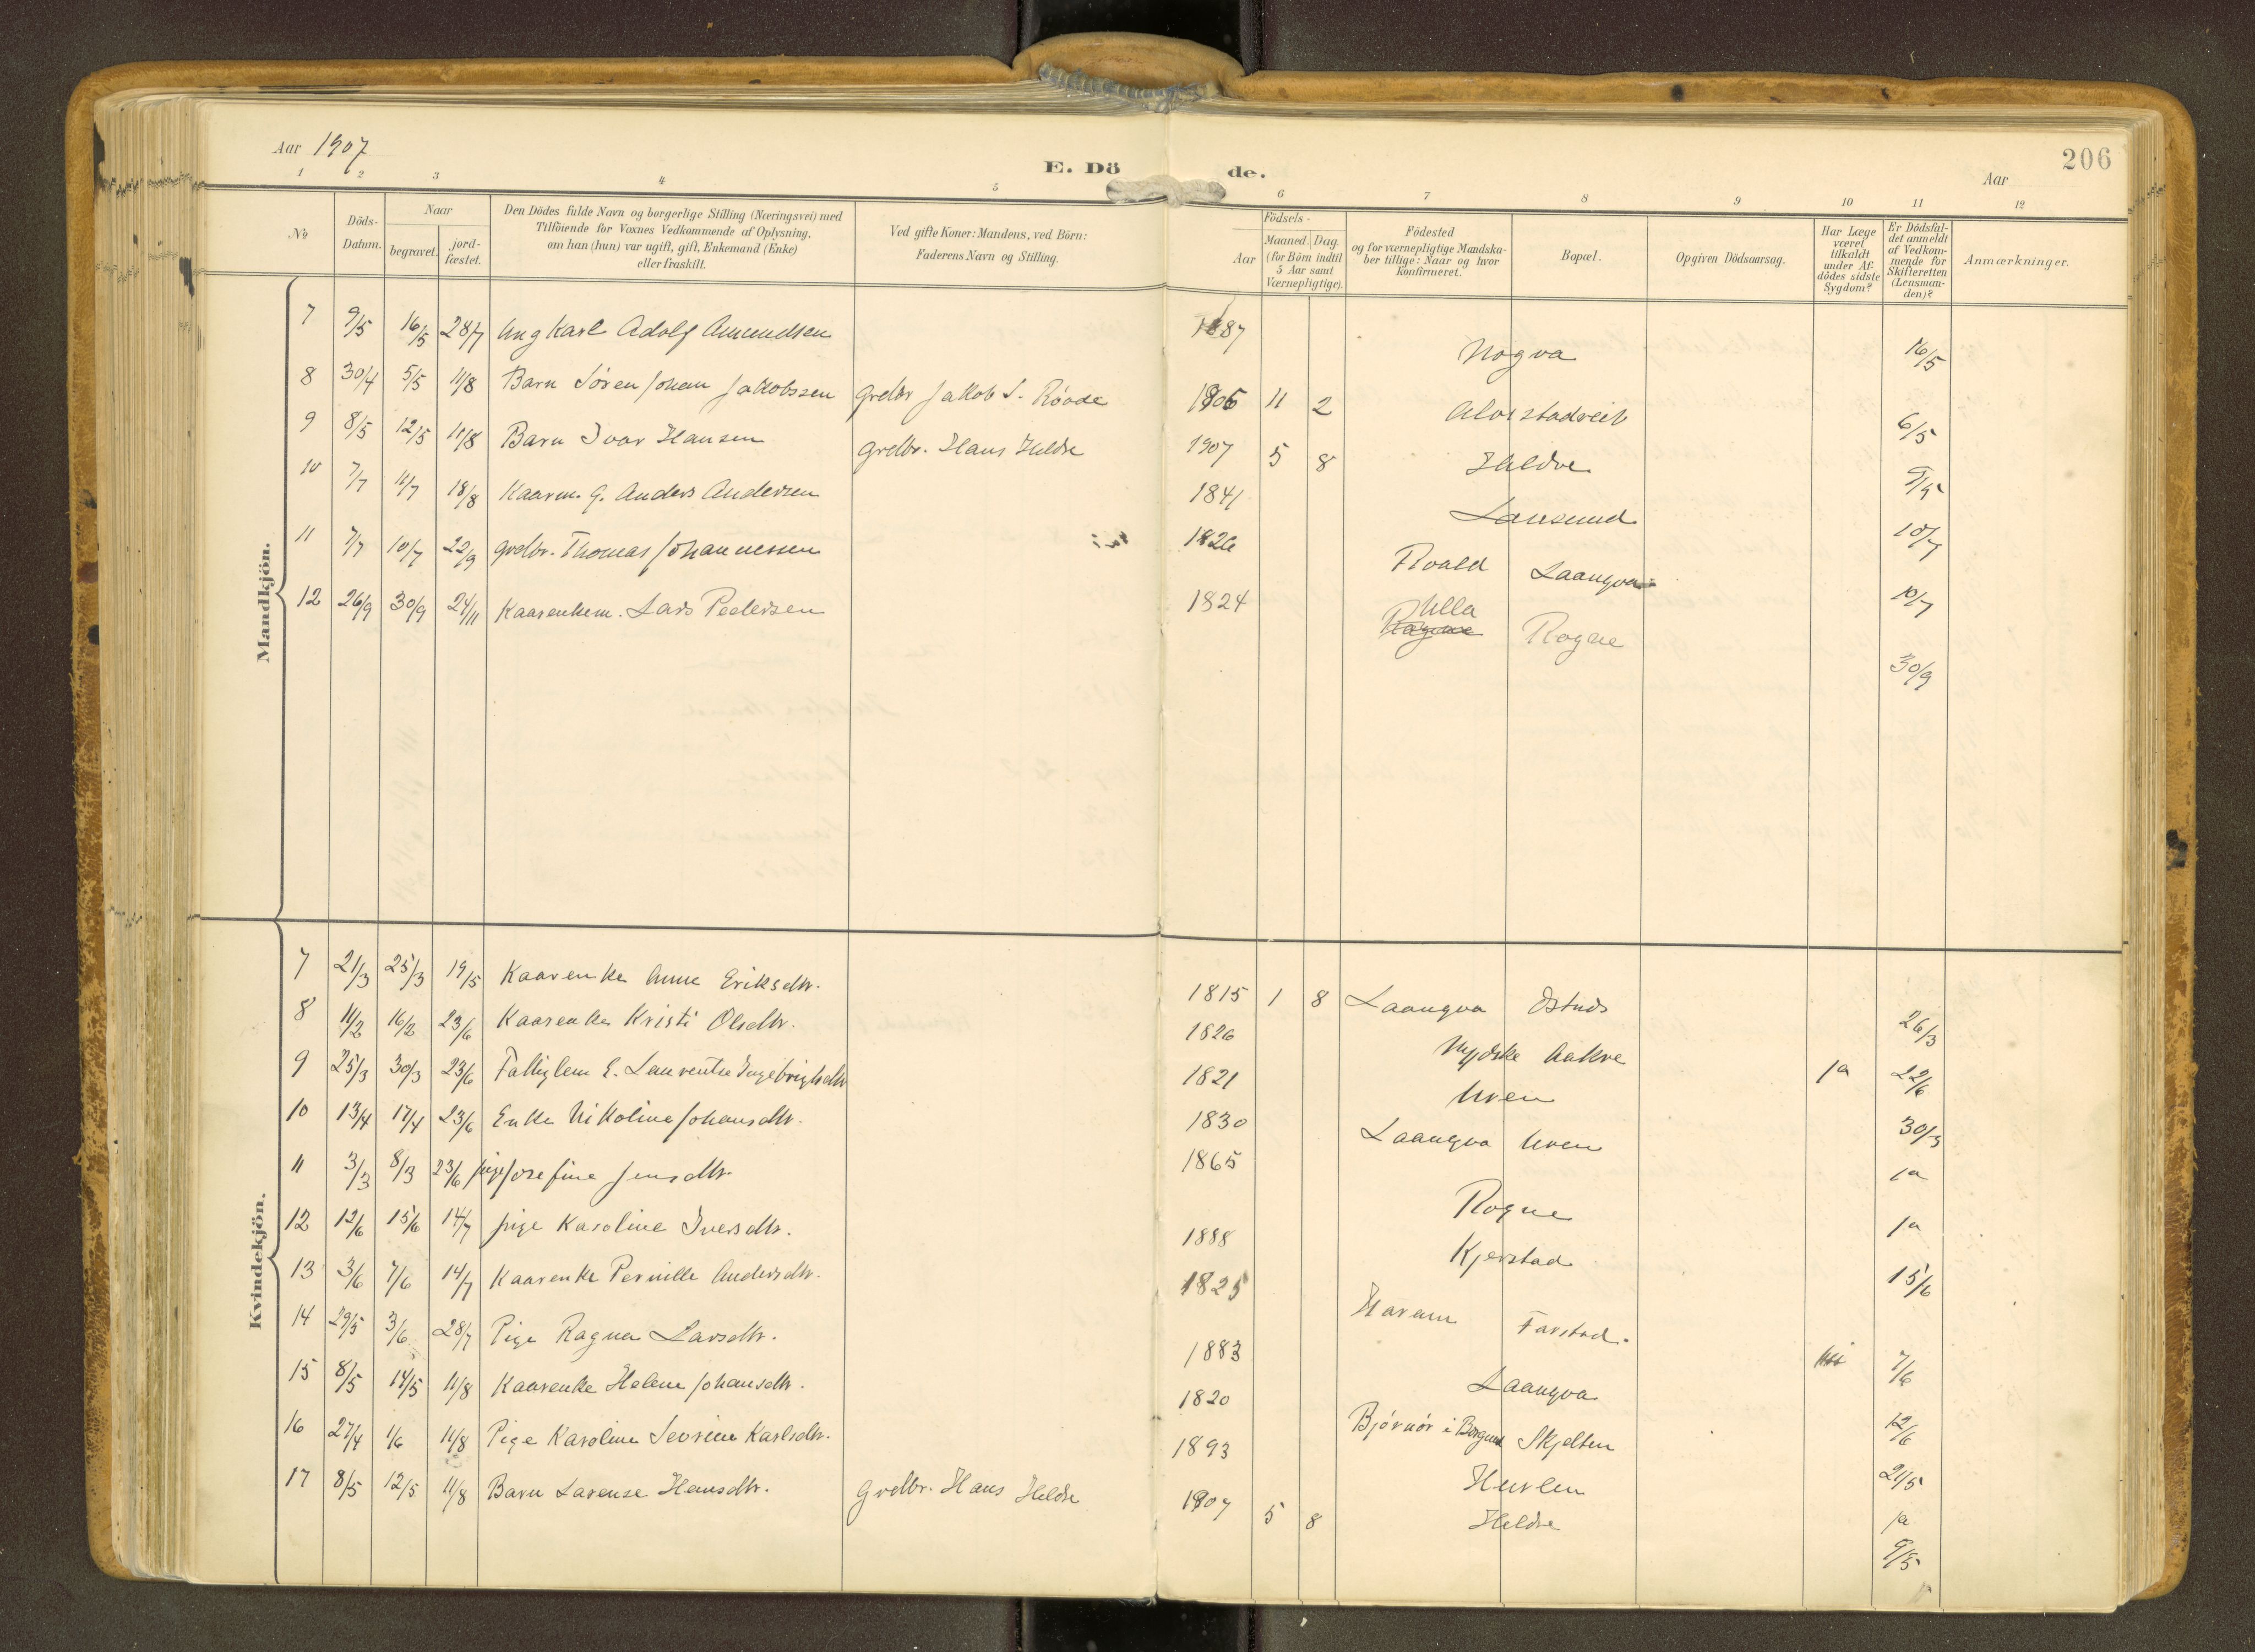 Aar 1907
E. Dö de.
Aar
206
1 2 3 4 5 6 7 8 9 10 11 12
No
Döds-Datum.
Naar
begravet.
jord-fæstet.
Den Dödes fulde Navn og borgerlige Stilling (Næringsvei) med
Tilföiende for Voxnes Vedkommende af Oplysning,
om han (hun) var ugift, gift, Enkemand (Enke)
eller fraskilt.
Ved gifte Koner: Mandens, ved Börn:
Faderens Navn og Stilling.
Födsels-
Aar
Maaned. Dag.
(for Börn indtil
5 Aar samt
Værnepligtige).
Födested
og for værnepligtige Mandska-
ber tillige: Naar og hvor
Konfirmeret.
Bopæl.
Opgiven Dödsaarsag.
Har Læge
været
tilkaldt
under Af-
dödes sidste
Sygdom?
Er Dödsfal-
det anmeldt
af Vedkom-
mende for
Skifteretten
(Lensman-
den)?
Anmærkninger.
Mandkjön.
7 9/5 16/5 28/7 Ung Karl Adolf Amundsen 1887 Nogva 16/5
8 30/4 5/5 11/8 Barn Søren Johan Jakobssen Grdbr Jakob S. Røode 1906 11 2 Alvestadveit 6/5
9 8/5 12/5 11/8 Barn Ivar Hansen Grdbr. Hans Hildre 1907 5 8 Hildre 9/5
10 7/7 11/7 18/8 Kaarm. G. Anders Andersen 1841 Lausund 10/7
11 7/7 10/7 22/9 Grdbr. Thomas Johannessen 1826 Roald Laangva 10/7
12 26/9 30/9 24/11 Kaarenkem. Lars Pedersen 1824 Ulla Rogne 30/9
Kvindekjön.
7 21/3 25/3 19/5 Kaarenke Anne Eriksdtr. 1815 1 8 Laangva Østnes 26/3
8 11/2 16/2 23/6 Kaarenke Kristi Olsdtr. 1826 Aakre ja 22/6
9 25/3 30/3 23/6 Fattiglem E. Laurentse Ingebrigtsdtr 1821 Uren 30/3
10 13/4 17/4 23/6 Enke Nikoline Johansdtr. 1830 Laangva Uren ja
11 3/3 8/3 23/6 pige Josefine Jensdtr. 1865 Rogne ja
12 12/6 15/6 14/7 pige Karoline Iversdtr. 1888 Kjerstad 15/6
13 3/6 7/6 14/7 Kaarenke Pernille Andersdtr. 1825 Haram Farstad. 7/6
14 29/5 3/6 28/7 Pige Ragna Larsdtr. 1883 Laangva 12/6
15 8/5 14/5 11/8 Kaarenke Helene Johansdtr. 1820 Bjørnør i Borgund Skjelten 21/5
16 27/4 1/6 11/8 Pige Karoline Sevrine Karlsdtr. 1893 Hurlen ja
17 8/5 12/5 11/8 Barn Larense Hansdtr. Grdbr. Hans Hildre 1907 5 8 Hildre 9/5